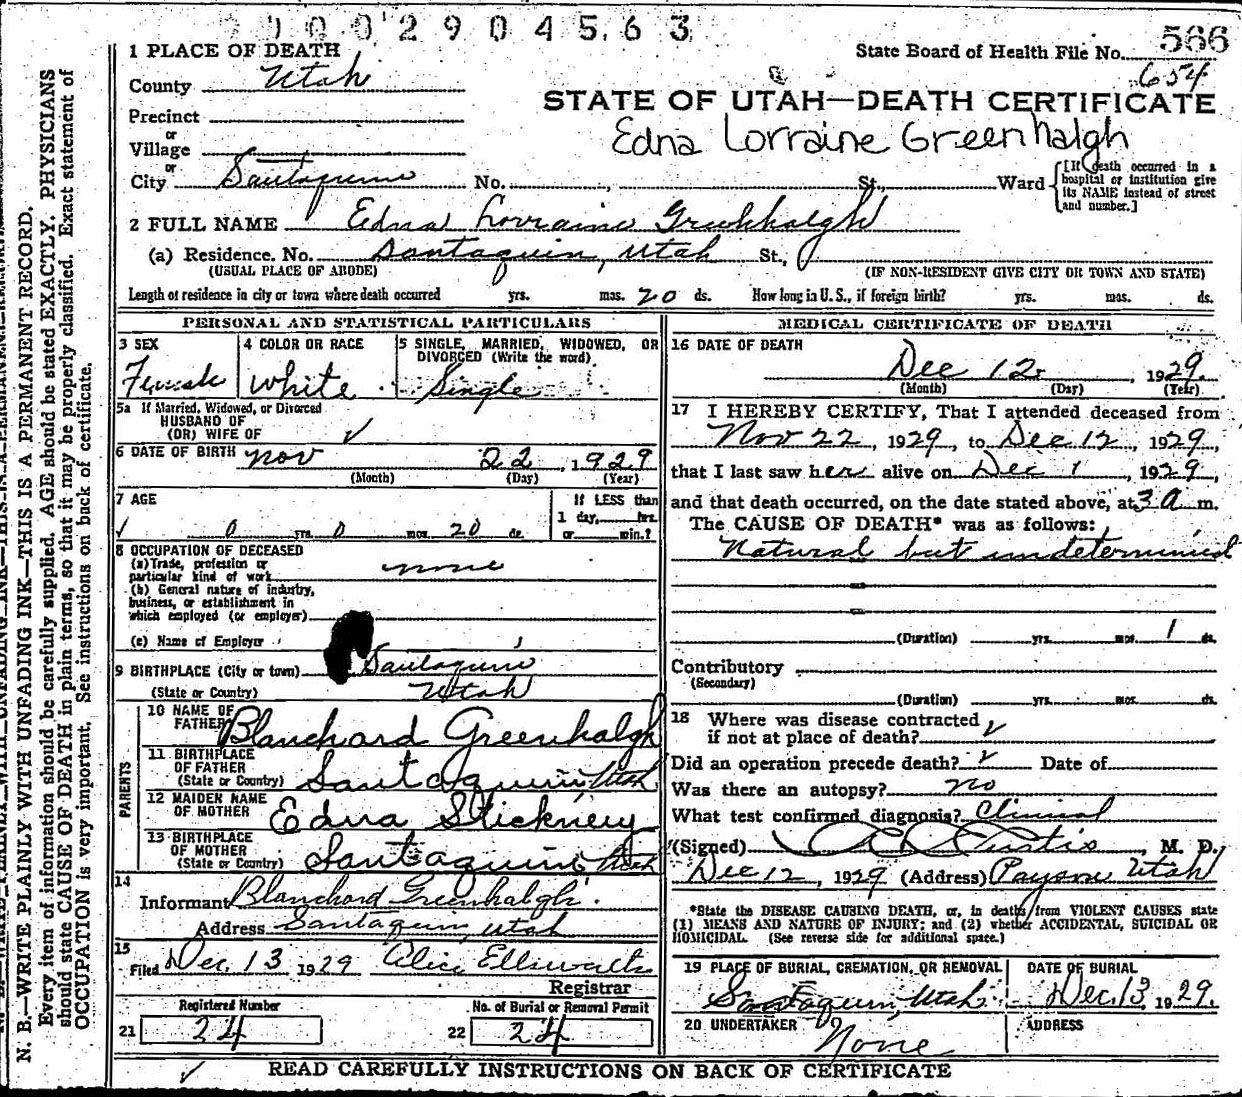 0002904563
1 PLACE OF DEATH
State Board of Health File No. 566
County Utah
654
STATE OF UTAH—DEATH CERTIFICATE
Precinct
Edna Lorraine Greenhalgh
or
Village
or
City Santaquin No. , St., Ward
[If death occurred in a hospital or institution give its NAME instead of street and number.]
2 FULL NAME Edna Lorraine Greenhalgh
(a) Residence. No. Santaquin, Utah St.,
(USUAL PLACE OF ABODE) (IF NON-RESIDENT GIVE CITY OR TOWN AND STATE)
Length of residence in city or town where death occurred yrs. mos. 20 ds. How long in U. S., if foreign birth? yrs. mos. ds.
PERSONAL AND STATISTICAL PARTICULARS
3 SEX
Female
4 COLOR OR RACE
White
5 SINGLE, MARRIED, WIDOWED, OR
DIVORCED (Write the word)
Single
5a If Married, Widowed, or Divorced
HUSBAND OF
(OR) WIFE OF ✓
6 DATE OF BIRTH Nov 22, 1929
(Month) (Day) (Year)
7 AGE
If LESS than
1 day, hrs.
or min.?
✓ 0 yrs. 0 mos. 20 ds.
8 OCCUPATION OF DECEASED
(a) Trade, profession or
particular kind of work none
(b) General nature of industry,
business, or establishment in
which employed (or employer)
(c) Name of Employer
9 BIRTHPLACE (City or town) Santaquin
(State or Country) Utah
PARENTS
10 NAME OF
FATHER Blanchard Greenhalgh
11 BIRTHPLACE
OF FATHER
(State or Country) Santaquin, Utah
12 MAIDEN NAME
OF MOTHER Edna Stickney
13 BIRTHPLACE
OF MOTHER
(State or Country) Santaquin Utah
14
Informant Blanchard Greenhalgh.
Address Santaquin, Utah
15
Filed Dec. 13 1929 Alice Ellsworth
Registrar
Registered Number
21 24
No. of Burial or Removal Permit
22 24
MEDICAL CERTIFICATE OF DEATH
16 DATE OF DEATH
Dec 12, 1929.
(Month) (Day) (Year)
17 I HEREBY CERTIFY, That I attended deceased from
Nov 22, 1929, to Dec 12, 1929,
that I last saw her alive on Dec 1, 1929,
and that death occurred, on the date stated above, at 3 a m.
The CAUSE OF DEATH* was as follows:
Natural but undetermined
(Duration) yrs. mos. 1 ds.
Contributory
(Secondary)
(Duration) yrs. mos. ds.
18 Where was disease contracted
if not at place of death? ✓
Did an operation precede death? ✓ Date of
Was there an autopsy? no
What test confirmed diagnosis? Clinical
(Signed) Curtis, M. D.
Dec 12, 1929 (Address) Payson Utah
*State the DISEASE CAUSING DEATH, or, in deaths from VIOLENT CAUSES state
(1) MEANS AND NATURE OF INJURY; and (2) whether ACCIDENTAL, SUICIDAL OR
HOMICIDAL. (See reverse side for additional space.)
19 PLACE OF BURIAL, CREMATION, OR REMOVAL
Santaquin, Utah.
DATE OF BURIAL
Dec. 13, 1929.
20 UNDERTAKER
None
ADDRESS
READ CAREFULLY INSTRUCTIONS ON BACK OF CERTIFICATE
✓
N. B.—WRITE PLAINLY WITH UNFADING INK—THIS IS A PERMANENT RECORD.
Every item of information should be carefully supplied. AGE should be stated EXACTLY. PHYSICIANS
should state CAUSE OF DEATH in plain terms, so that it may be properly classified. Exact statement of
OCCUPATION is very important. See instructions on back of certificate.